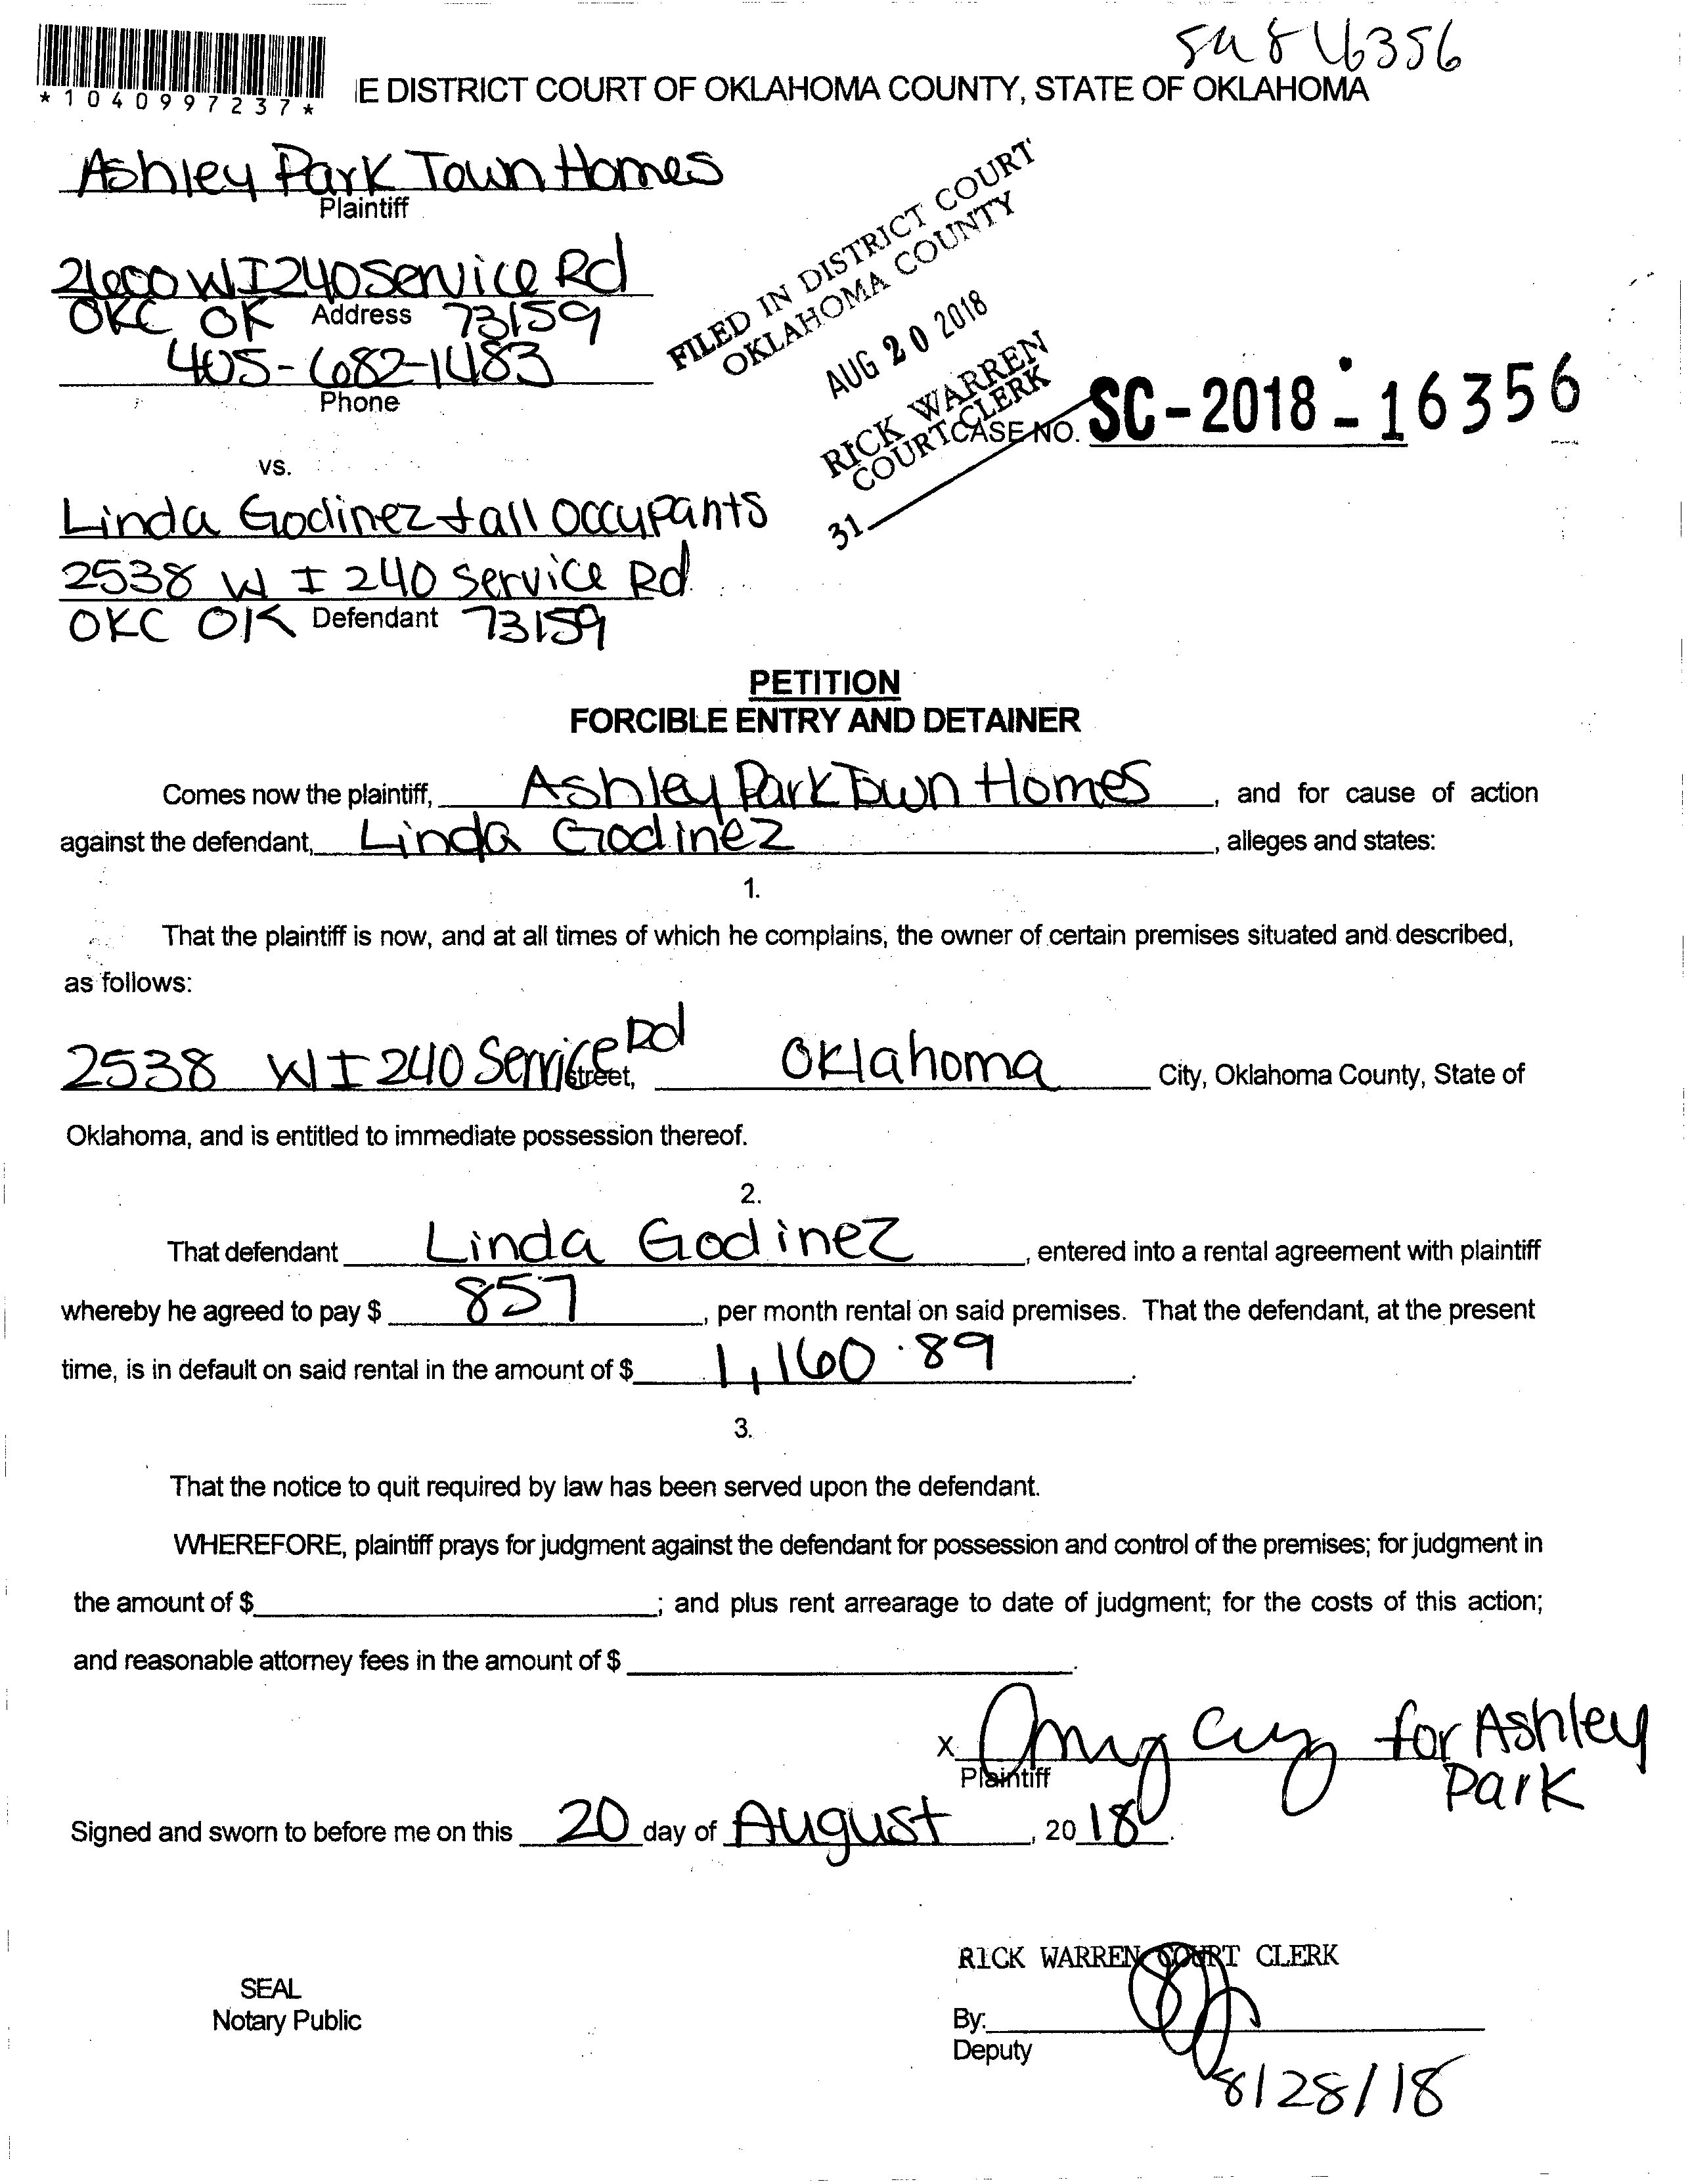 *1040997237*
E DISTRICT COURT OF OKLAHOMA COUNTY, STATE OF OKLAHOMA
Ashley Park Town Homes
Plaintiff
2600 W I 240 Service Rd
OKC OK Address 73159
405-682-1483
Phone
FILED IN DISTRICT COURT
OKLAHOMA COUNTY
AUG 20 2018
RICK WARREN
COURT CLERK
31
CASE NO. SC-2018-16356
vs.
Linda Godinez + all occupants
2538 W I 240 Service Rd
OKC OK Defendant 73159
PETITION
FORCIBLE ENTRY AND DETAINER
Comes now the plaintiff, Ashley Park Town Homes, and for cause of action
against the defendant, Linda Godinez, alleges and states:
1.
That the plaintiff is now, and at all times of which he complains, the owner of certain premises situated and described,
as follows:
2538 W I 240 Service Rd street, Oklahoma City, Oklahoma County, State of
Oklahoma, and is entitled to immediate possession thereof.
2.
That defendant Linda Godinez, entered into a rental agreement with plaintiff
whereby he agreed to pay $ 857, per month rental on said premises. That the defendant, at the present
time, is in default on said rental in the amount of $ 1,160.89.
3.
That the notice to quit required by law has been served upon the defendant.
WHEREFORE, plaintiff prays for judgment against the defendant for possession and control of the premises; for judgment in
the amount of $ ; and plus rent arrearage to date of judgment; for the costs of this action;
and reasonable attorney fees in the amount of $ .
X for Ashley
Plaintiff Park
Signed and sworn to before me on this 20 day of August, 20 18.
RICK WARREN COURT CLERK
SEAL
Notary Public
By:
Deputy
8/28/18